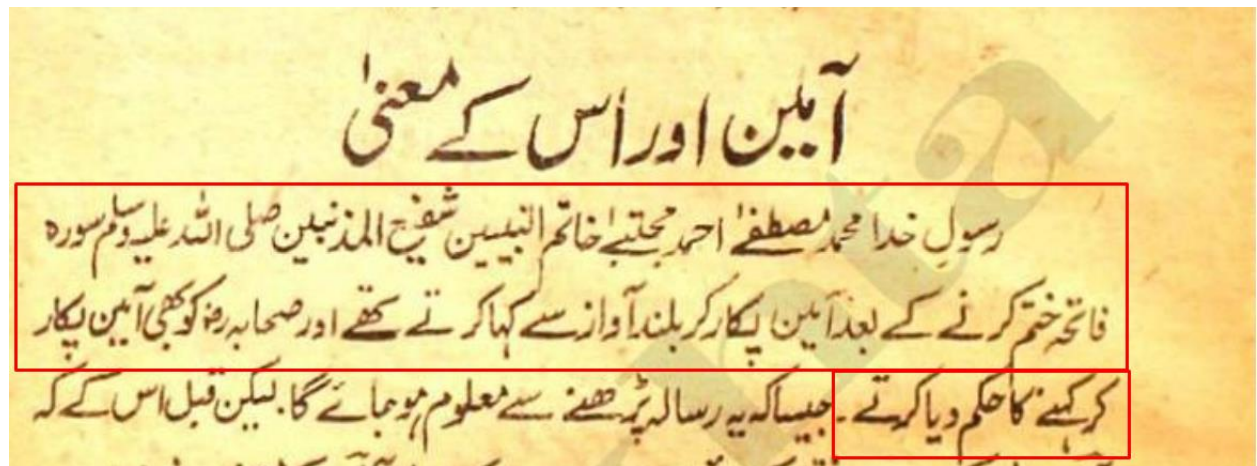 آمین اور اس کے معنیٰ
رسولِ خدا محمد مصطفےٰ احمد مجتبےٰ خاتم النبیین شفیع المذنبین صلی اللہ علیہ وسلم سورہ
فاتحہ ختم کرنے کے بعد آمین پکار کر بلند آواز سے کہا کرتے تھے اور صحابہ رضؓ کو بھی آمین پکار
کر کہنے کا حکم دیا کرتے ۔ جیسا کہ یہ رسالہ پڑھنے سے معلوم ہو جائے گا۔ لیکن قبل اس کے کہ